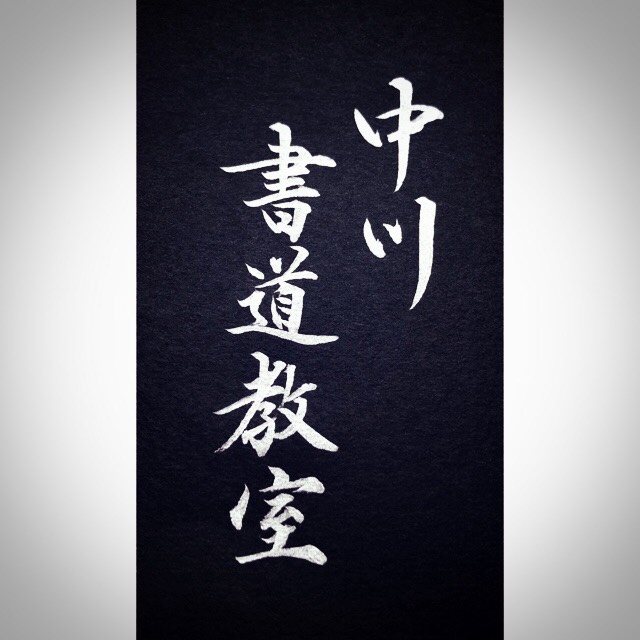 中川
書道教室